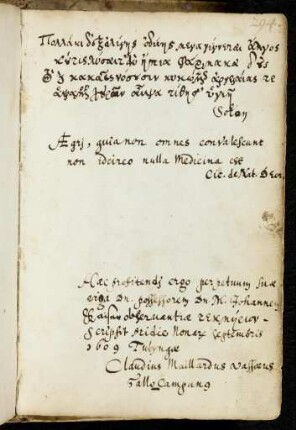 294
Πολλάκι δ' ἐξ ὀλίγης ὀδύνης μέγα γίγνεται ἄλγος
κοὐκ ἄν τις λύσαιτ' ἤπια φάρμακα δούς
τὸν δὲ κακαῖς νούσοισι κυκώμενον ἀργαλέαις τε
ἁψάμενος χειροῖν αἶψα τίθησ' ὑγιῆ
Solon
Ægri, quia non omnes convalescunt
non idcirco nulla Medicina est
Cic. de Nat. Deor.
Hæc profitendi ergo perpetuum suæ
erga Dn. possessorem Dn. M. Johannem
observantiæ τεκμήριον
scripsit pridie Nonar. Septembris
1609 Tubingæ
Claudius Maillardus
Gallo Campanus